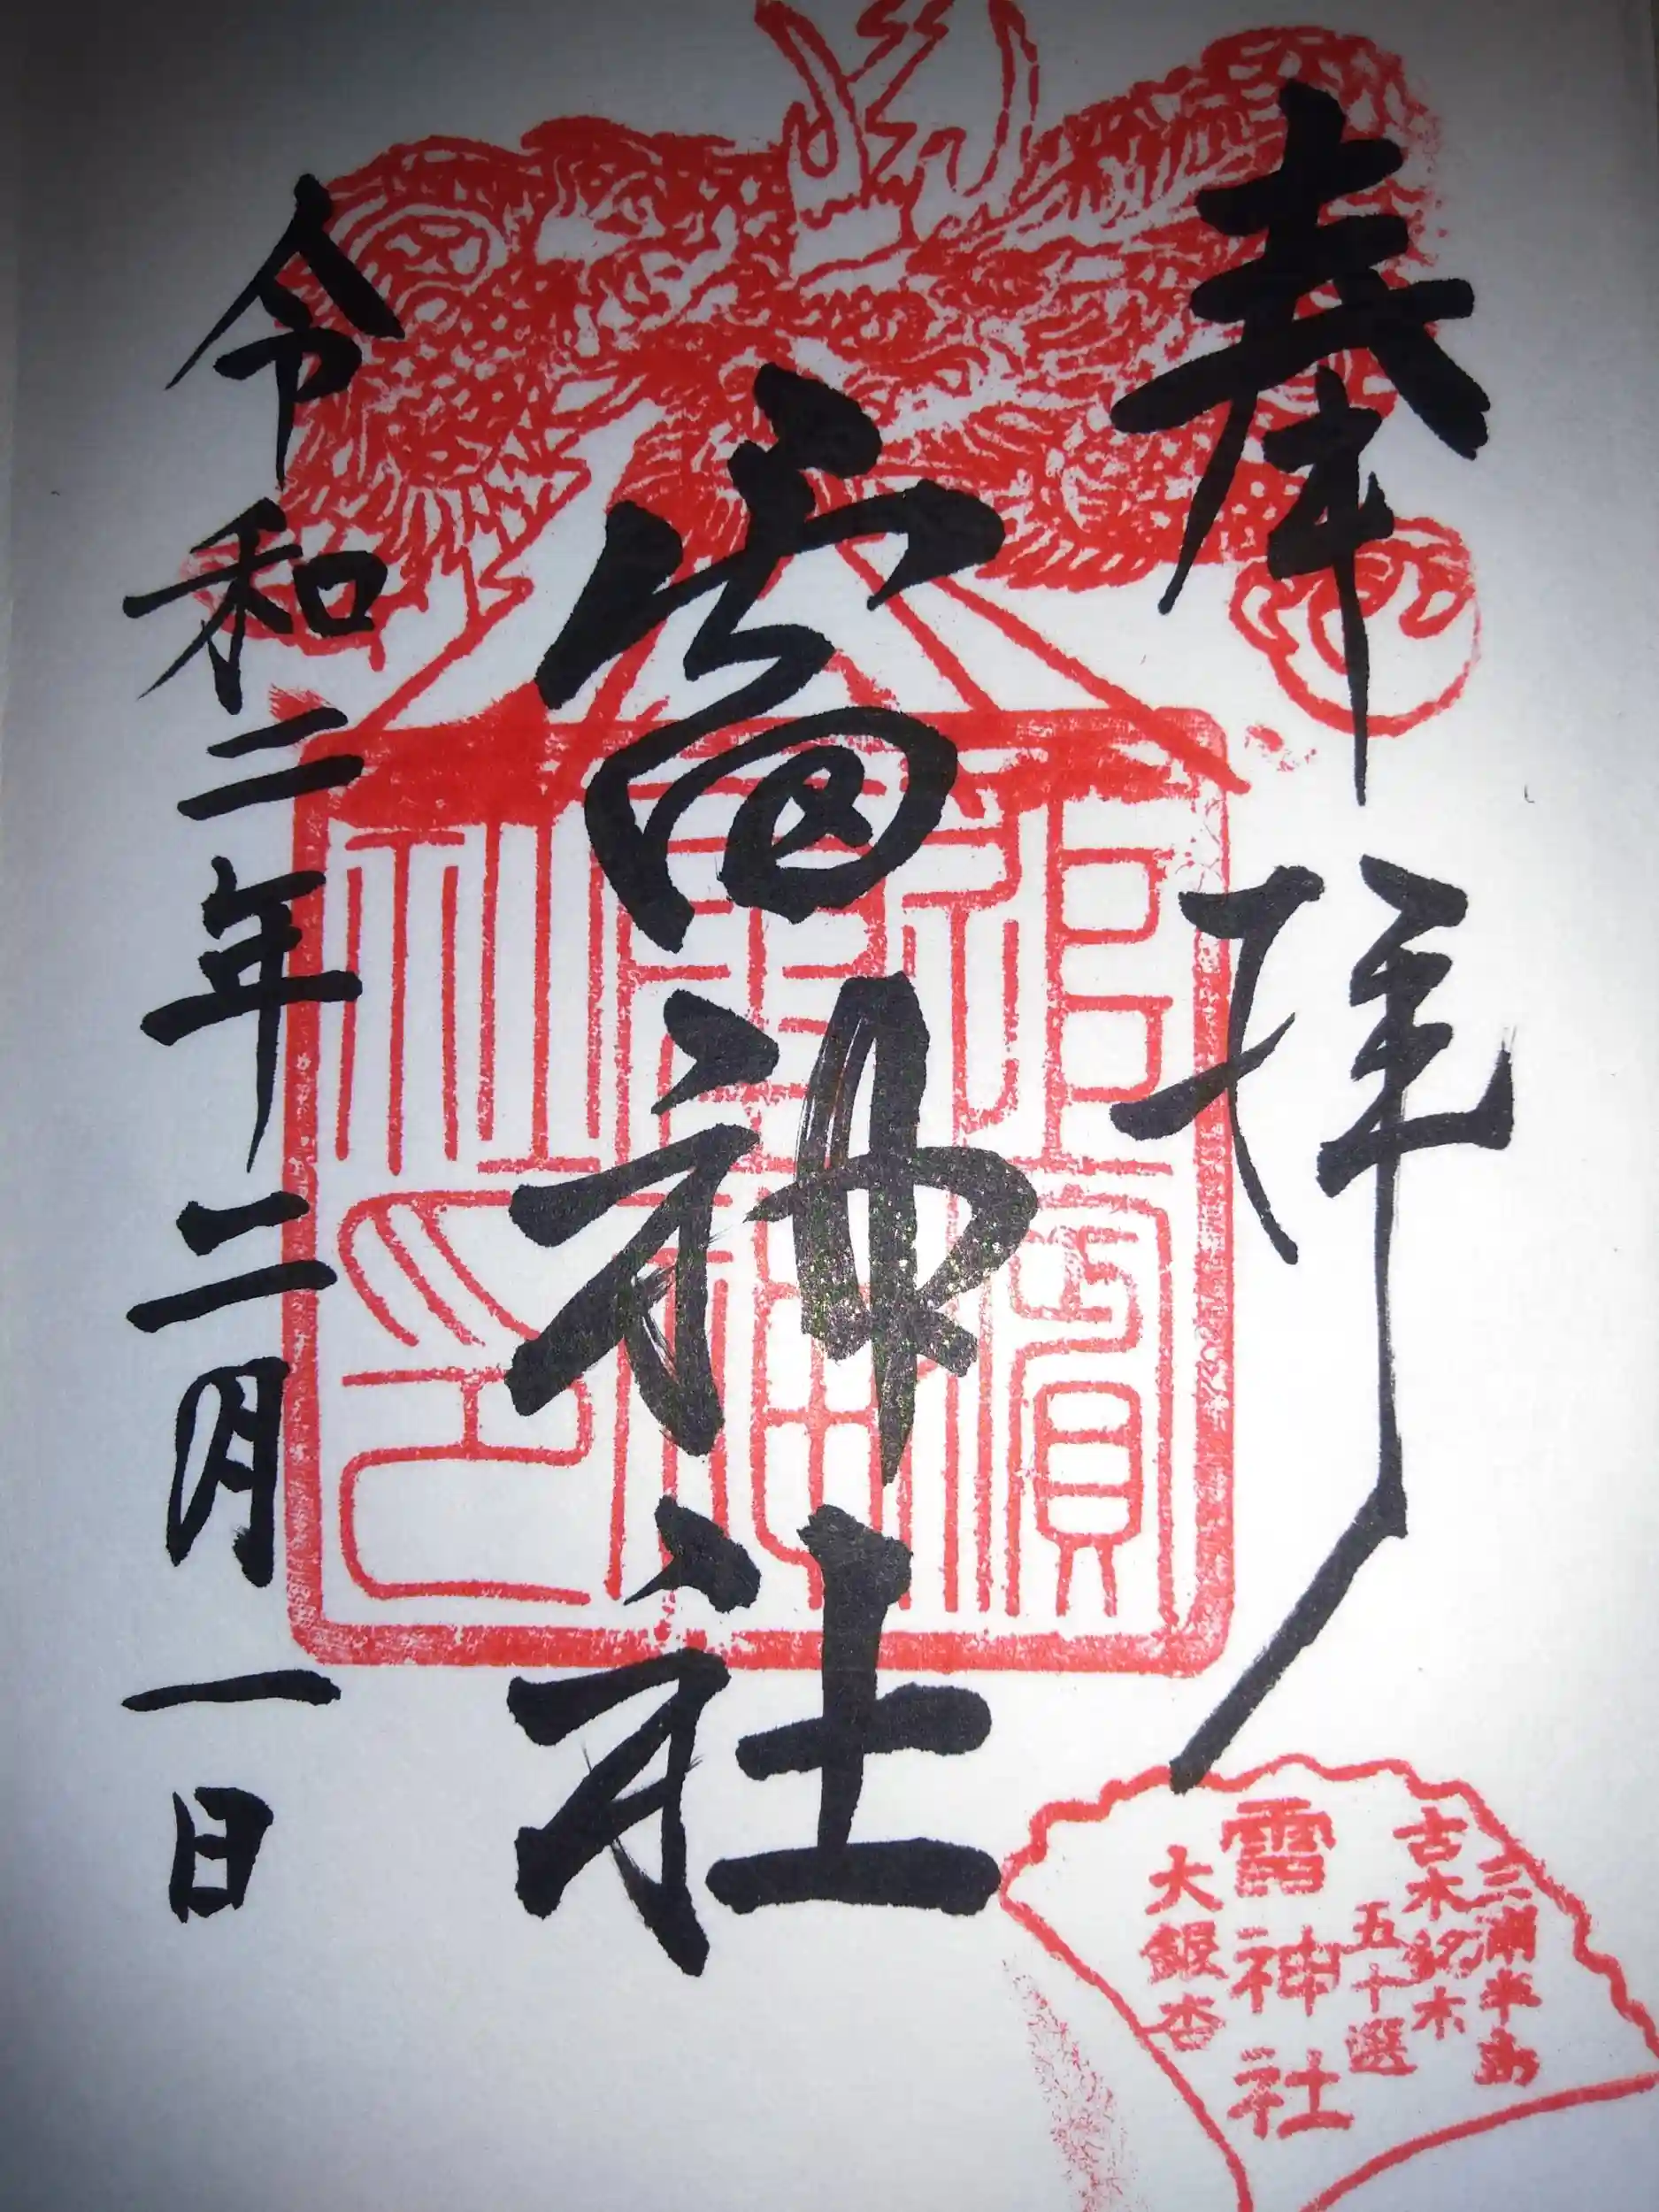 奉拝
雷神社
令和二年二月一日
追濱
雷神
社印
三浦半島
古木銘木
五十選
雷神社
大銀杏